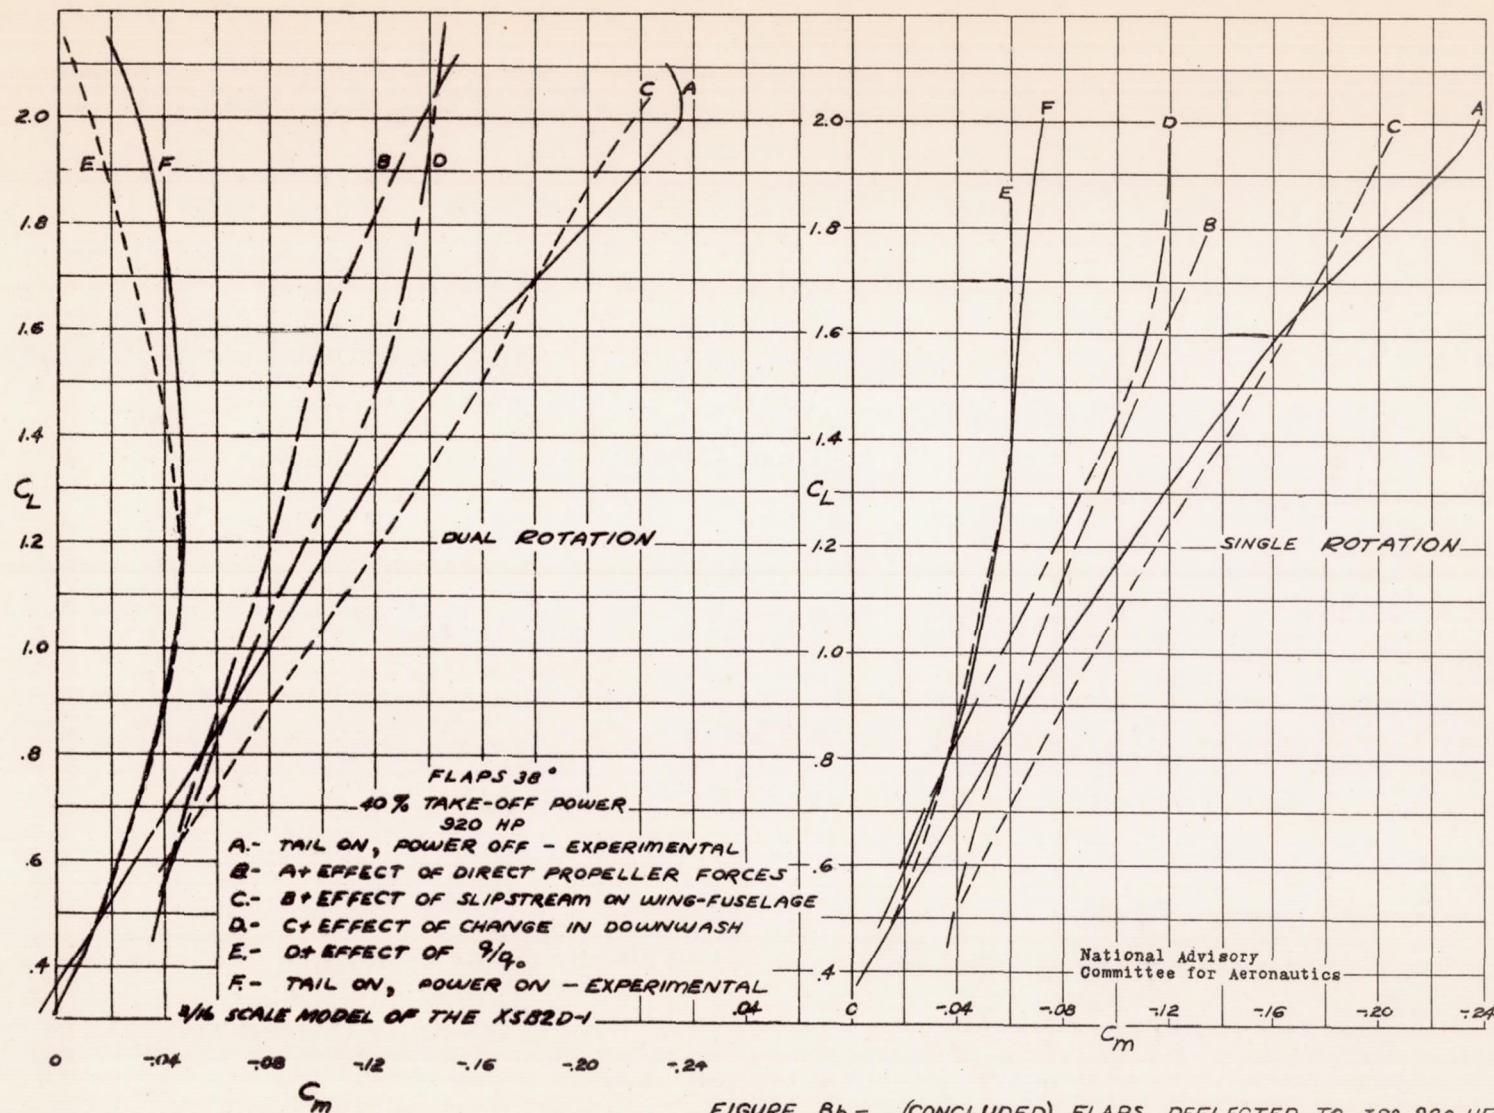 2.0
1.8
1.6
1.4
C_L
1.2
1.0
.8
.6
.4
E
F
B
D
C
A
DUAL ROTATION
FLAPS 38°
40% TAKE-OFF POWER
920 HP
A.- TAIL ON, POWER OFF - EXPERIMENTAL
B- A+EFFECT OF DIRECT PROPELLER FORCES
C.- B+EFFECT OF SLIPSTREAM ON WING-FUSELAGE
D.- C+EFFECT OF CHANGE IN DOWNWASH
E.- D+EFFECT OF q/q₀
F.- TAIL ON, POWER ON - EXPERIMENTAL
3/16 SCALE MODEL OF THE XSB2D-1
0 -.04 -.08 -.12 -.16 -.20 -.24
C_m
2.0
1.8
1.6
1.4
C_L
1.2
1.0
.8
.6
.4
F
E
D
B
C
A
SINGLE ROTATION
National Advisory
Committee for Aeronautics
.04 0 -.04 -.08 -.12 -.16 -.20 -.24
C_m
FIGURE 8b.- (CONCLUDED) FLAPS DEFLECTED TO 38°